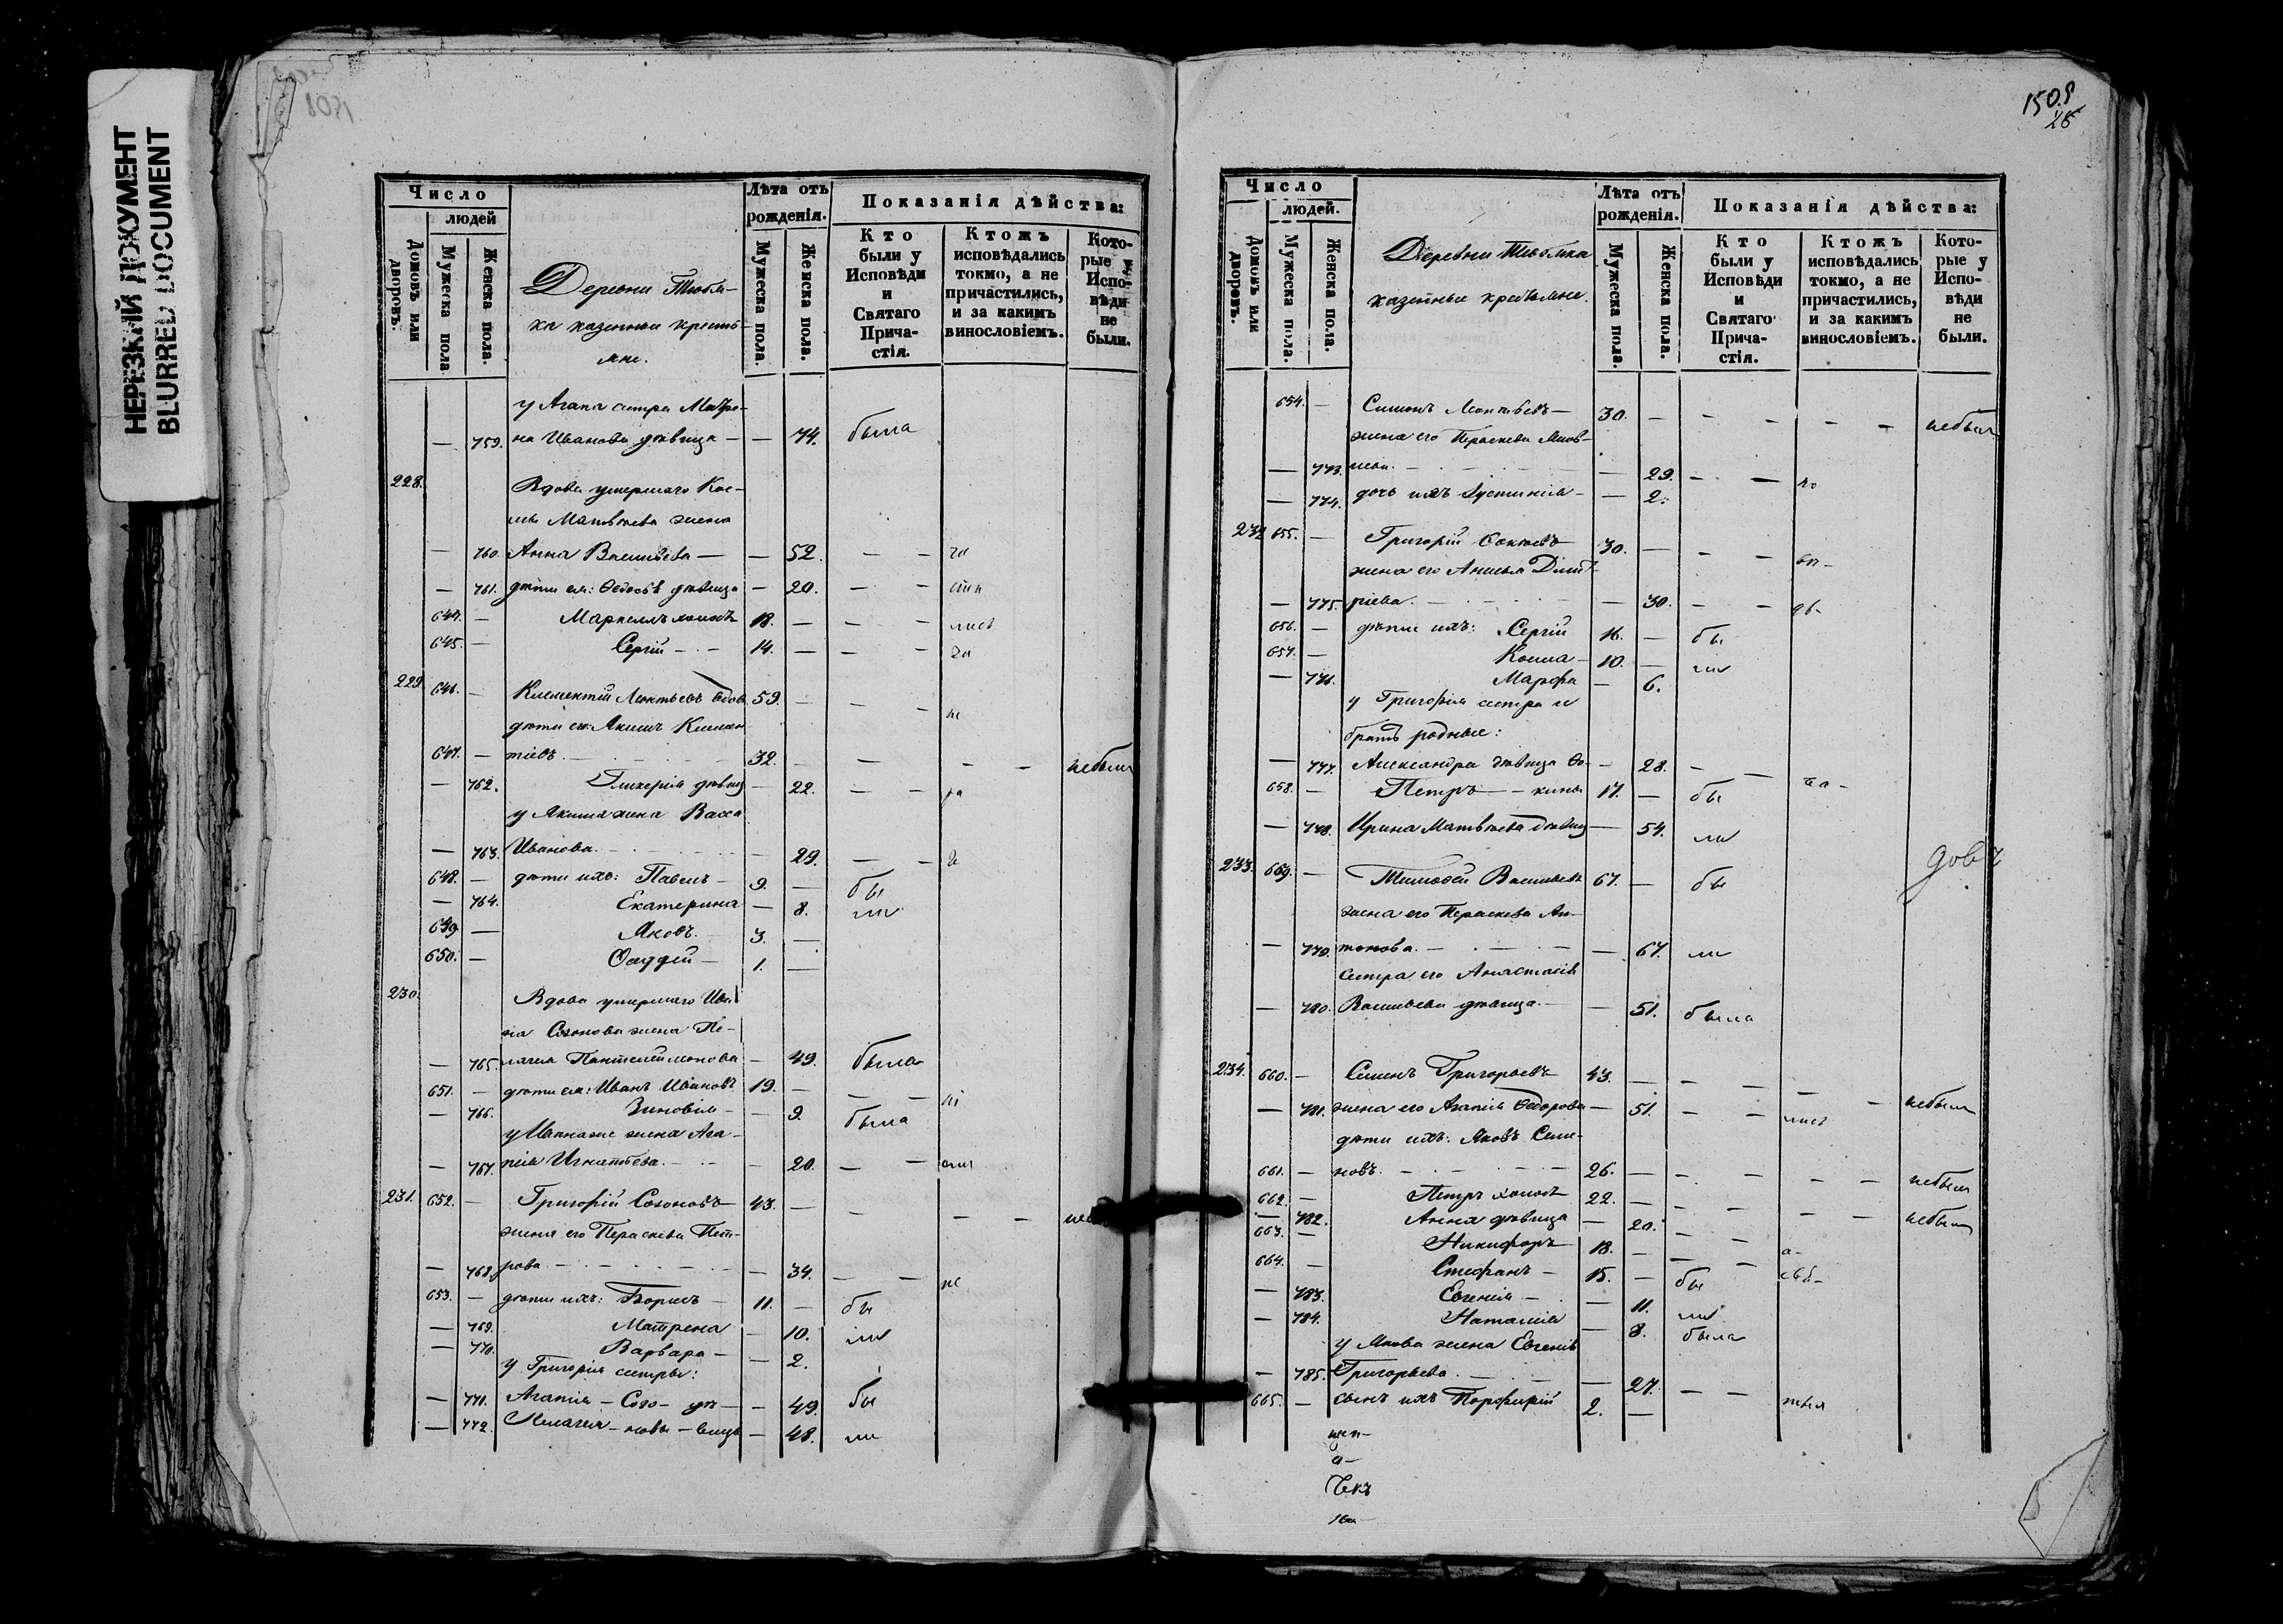 НЕРЕЗКИЙ ДОКУМЕНТ
BLURRED DOCUMENT
1508
Число
людей
Домовъ или дворовъ.
Мужеска пола
Женска пола.
Деревни Тюбя-
ка казенные кресть-
яне.
Лѣта отъ рожденія.
Мужеска пола.
Женска пола.
Показанія дѣйства:
Кто были у Исповѣди и Святаго Прича-стія.
Ктожъ исповѣдались токмо, а не причастились, и за какимъ винословіемъ.
Кото-рые у Испо-вѣди не были.
у Агапа сестра Матре-
— 759. на Иванова дѣвица — — 74. была
228. Вдова умершаго Кос-
мы Матвѣева жена
— 760. Анна Васильева — — 52. — —
— 761. дѣти ея: Ѳедосья дѣвица — 20. —
644. — Маркеллъ холостъ 18. — — —
645. — Сергій — 14. — — —
229. 646. — Климентій Леонтьевъ вдов 59. — — —
дѣти его: Акимъ Климен-
647. — тіевъ. 32. — — — — небылъ
— 762. Гликерія дѣвиц — 22. — —
у Акима жена Васса
— 763. Иванова. — 29. — —
648. — дѣти ихъ: Павелъ — 9. — бы
— 764. Екатерина — 8. ли
649 — Яковъ. 3. —
650. — Ѳаддей — 1. —
230. Вдова умершаго Ива-
на Созонова жена Пе-
— 765. лагея Пантелеймонова — 49. была
651. — дѣти ея: Иванъ Ивановъ 19. — — —
— 766. Зиновія — — 9. была
у Ивана же жена Ага-
— 767. пія Игнатьева. — — 20. — —
231. 652. — Григорій Созоновъ 43. — — — —
жена его Параскева Пет-
— 768. рова — — 34. — —
653. — дѣти ихъ: Борисъ — 11. — бы
— 769. Матрена — 10. ли
— 770. Варвара — — 2.
у Григорія сестры:
— 771. Агапія — Созо- дѣ- — 49. бы
— 772. Пелагея — новы — вицы — 48. ли
1509
26
Число
людей.
Домовъ или дворовъ.
Мужеска пола.
Женска пола.
Деревни Тюбяка
казенные крестьяне.
Лѣта отъ рожденія.
Мужеска пола.
Женска пола.
Показанія дѣйства:
Кто были у Исповѣди и Святаго Прича-стія.
Ктожъ исповѣдались токмо, а не причастились, и за какимъ винословіемъ.
Кото-рые у Испо-вѣди не были.
654. — Симонъ Леонтьевъ — 30. — — — — — небылъ
жена его Параскева Яков-
— 773. лева. — — 29. — —
— 774. дочь ихъ Іустинія — — 2.
232 655. — Григорій 30. — — —
жена его Анисья Дмит-
— 775. ріева. — — 30. — —
656. — дѣти ихъ: Сергій 16. — бы
657. — Козма — 10. — ли
— 776. Марфа — 6.
у Григорія сестра и
братъ родные:
— 777. Александра дѣвица — 28. — —
658. — Петръ — 17. — бы
— 778. Ирина Матвѣева дѣвиц — 54. ли
233. 659. — Тимоѳей Васильевъ 67. — бы
жена его Параскева Ан-
— 779. тонова. — — 67. ли
сестра его Анастасія
— 780. Васильева дѣвица. — — 51. была
234. 660. — Семенъ Григорьевъ 43. — — — — — небылъ
— 781. жена его Агапія Ѳедорова — 51. — —
дѣти ихъ: Яковъ Семе-
661. — новъ. — 26. — — — — — небылъ
662. — Петръ холостъ 22. — — — — — небылъ
— 782. Анна дѣвица — 20. — —
663. — Никифоръ 18. — — —
664. — Стефанъ — 15. — бы
— 783. Евгенія — — 11. ли
— 784. Наталія — 8. была
у Якова жена Евгенія
— 785. Григорьева. — — 27. — —
665. — сынъ ихъ Порфирій 2. —